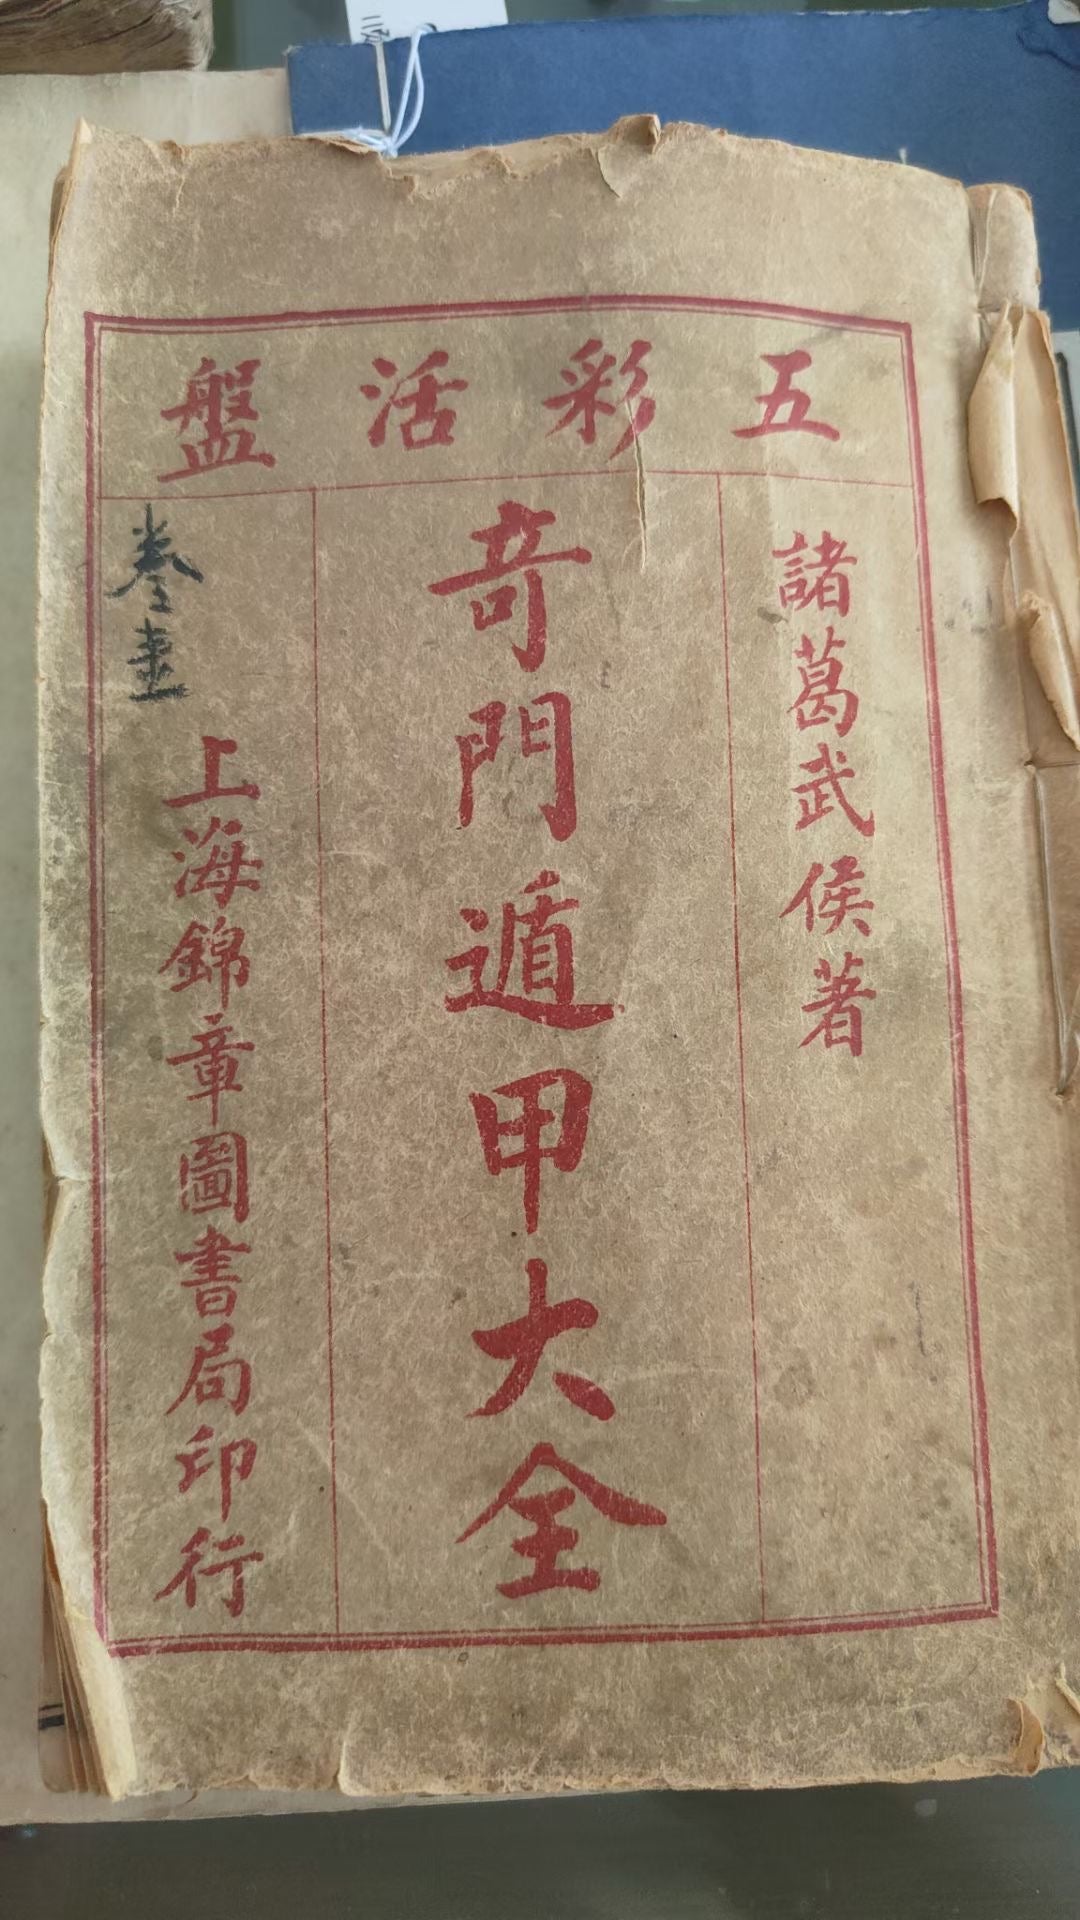 五彩活盤
諸葛武侯著
奇門遁甲大全
卷壹
上海錦章圖書局印行